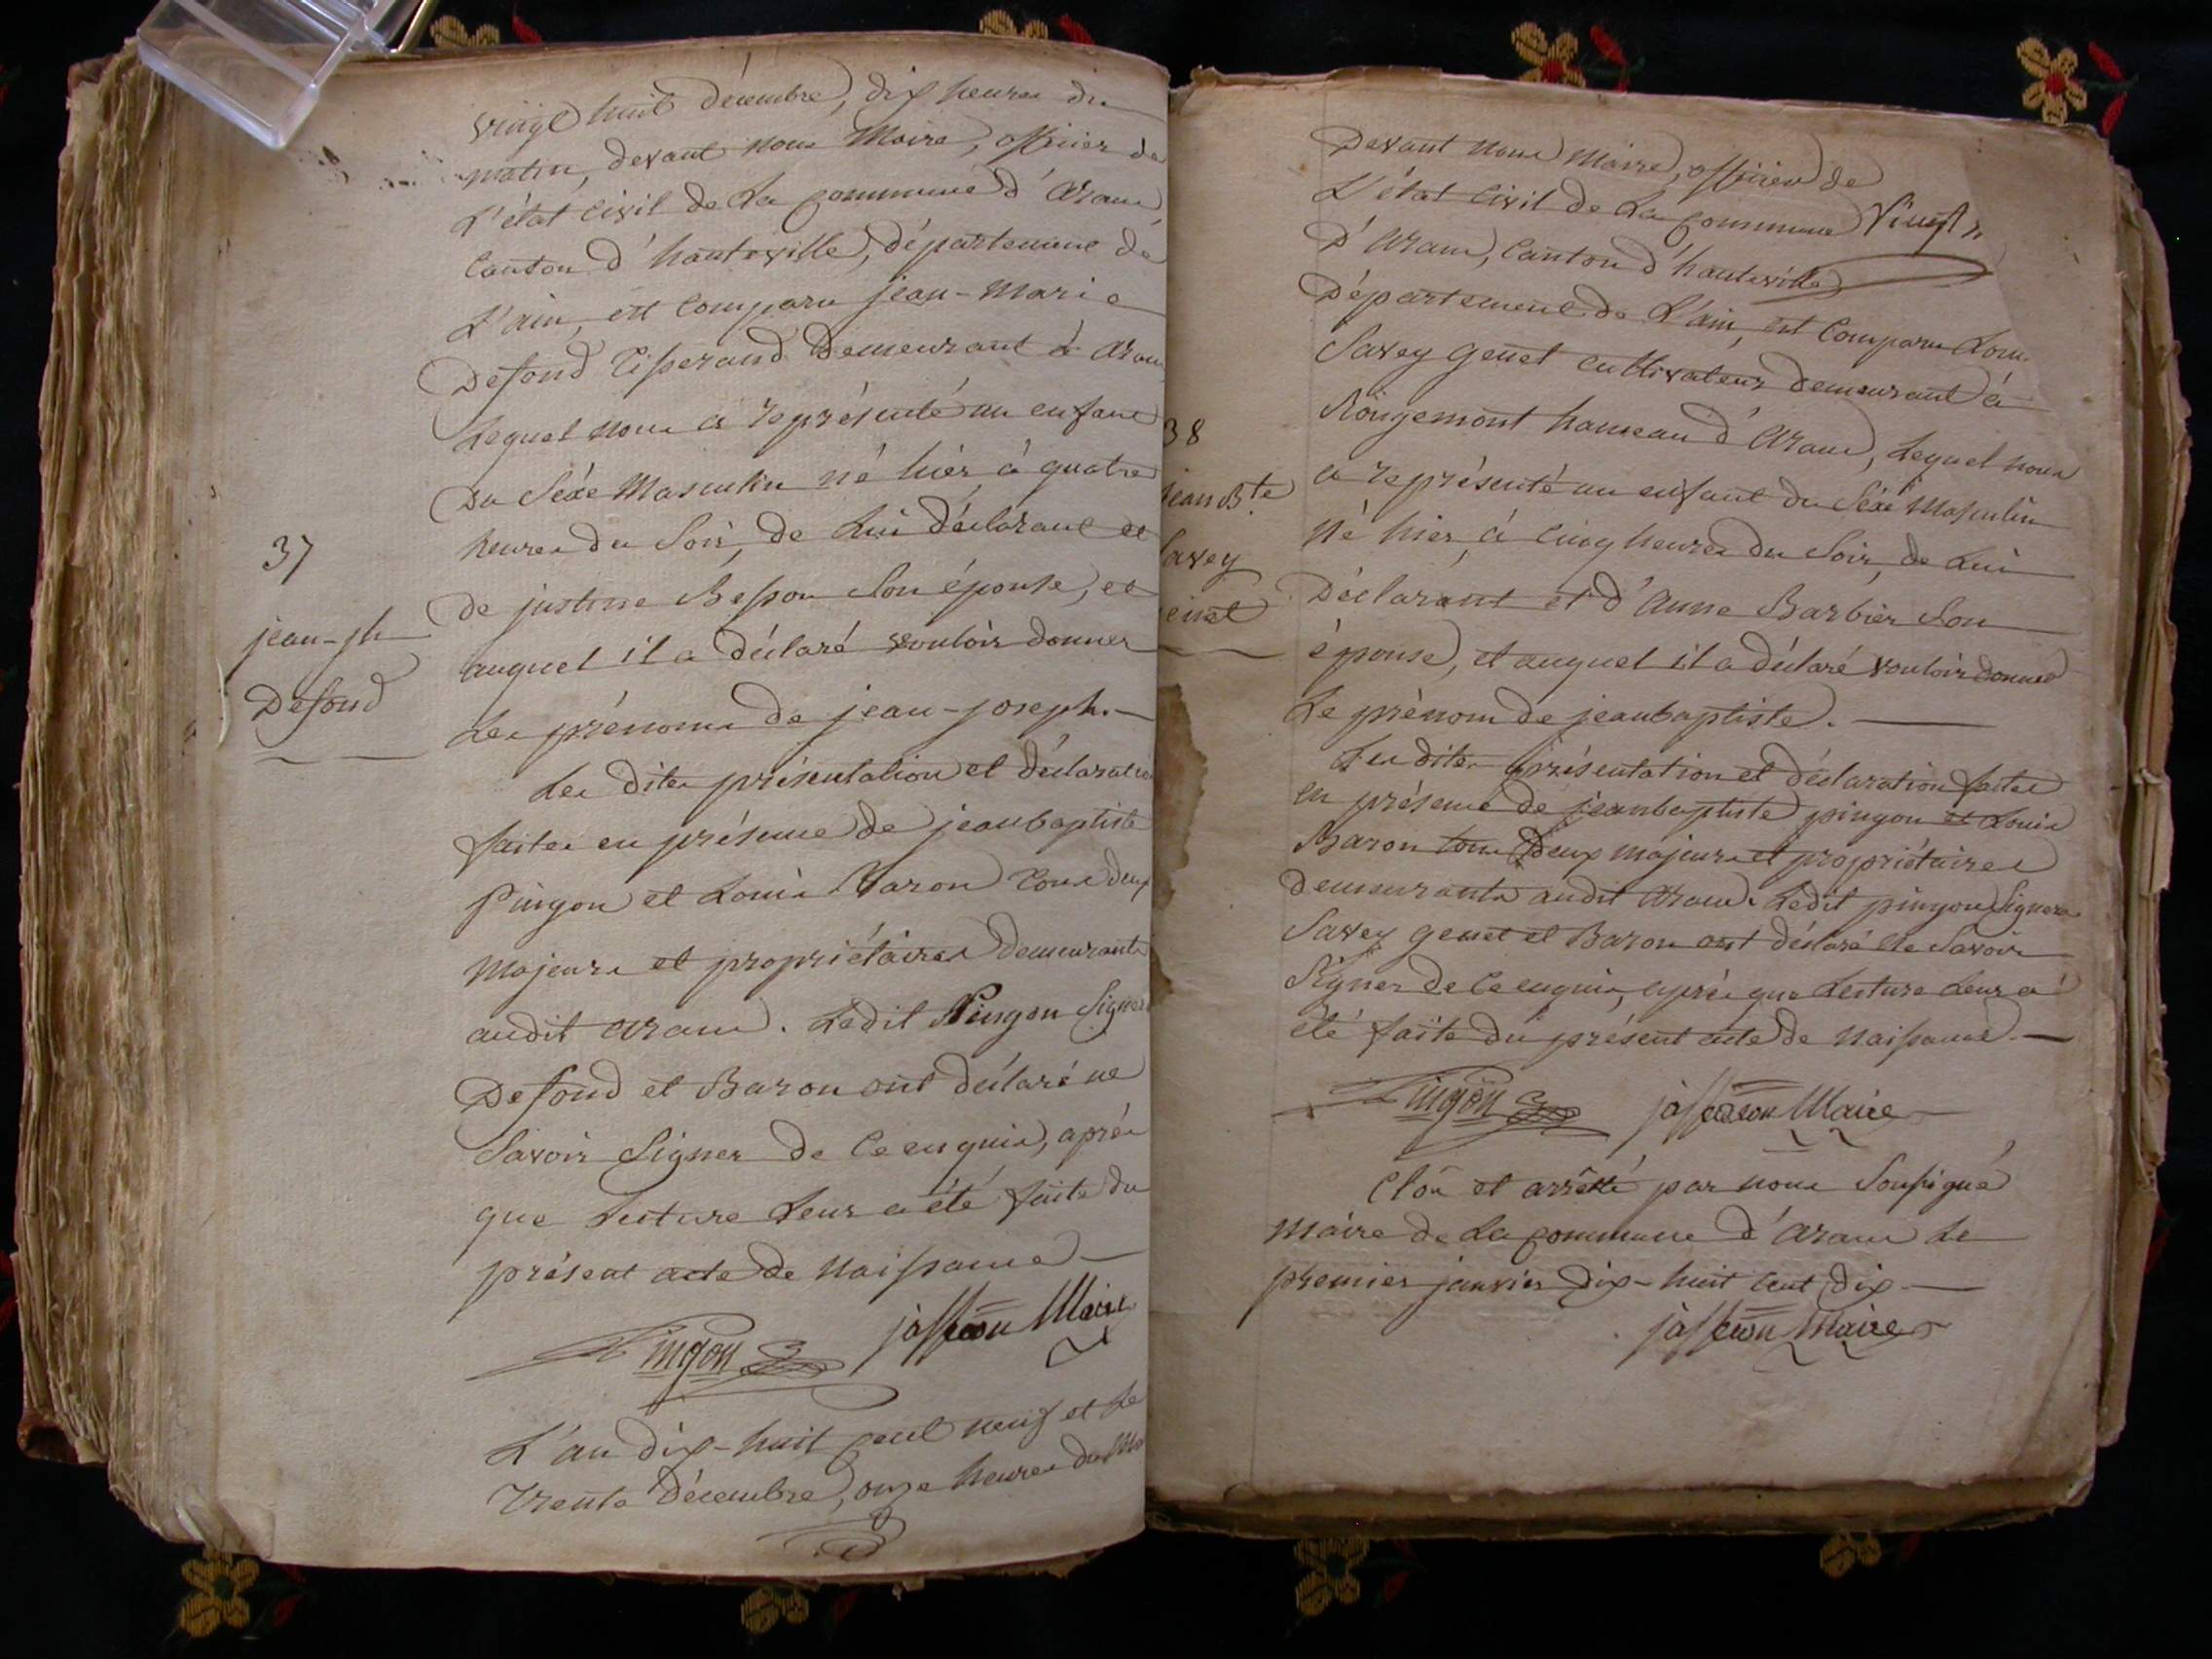 vingt huit décembre, dix heures du
matin, devant nous Maire, officier de
L'état Civil de La Commune d'aranc,
Canton d'hauteville, département de
L'ain, est Comparu jean-Marie
Defond tisserand Demeurant à aranc,
Lequel nous a représenté un enfant
Du Séxe Masculin né hier, à quatre
heures du Soir, de Lui déclarant et
37
de justine Besson Son épouse, et
jean-ph
auquel il a déclaré vouloir donner
Defond
Les prénoms de jean-joseph.
Les dites présentation et déclaration
faites en présence de jeanbaptiste
Pingon et Louis Baron tous deux
Majeurs et propriétaires demeurants
audit aranc. Ledit Pingon Signera
Defond et Baron ont déclaré ne
Savoir Signer de Ce enquis, après
que Lecture Leur a été faite du
présent acte de Naissance
Pingon jasseron Maire
L'an dix-huit cent neuf et Le
trente décembre, onze heures du M
Devant nous Maire, officier de
L'état Civil de La Commune
Vingt
D'aranc, Canton d'hauteville
Département de L'ain, est Comparu Louis
Savey genet cultivateur demeurant à
Rougemont hameau d'aranc, Lequel nous
38
a représenté un enfant du Séxe Masculin
jean Bte
Né hier, à cinq heures du Soir, de Lui
Savey
Déclarant et d'anne Barbier Son
enet
épouse, et auquel il a déclaré vouloir donner
Le prénom de jeanbaptiste.
Les dites présentation et déclaration faites
en présence de jeanbaptiste pingon et Louis
Baron tous deux majeurs et propriétaires
demeurants audit aranc. Ledit pingon Signera
Savey genet et Baron ont déclaré ne Savoir
Signer de Ce enquis, après que Lecture Leur a
été faite du présent acte de Naissance.
Pingon jasseron Maire
Clôs et arrêtté par nous Soussigné
Maire de La Commune d'aranc Le
premier janvier Dix-huit Cent Dix
jasseron Maire